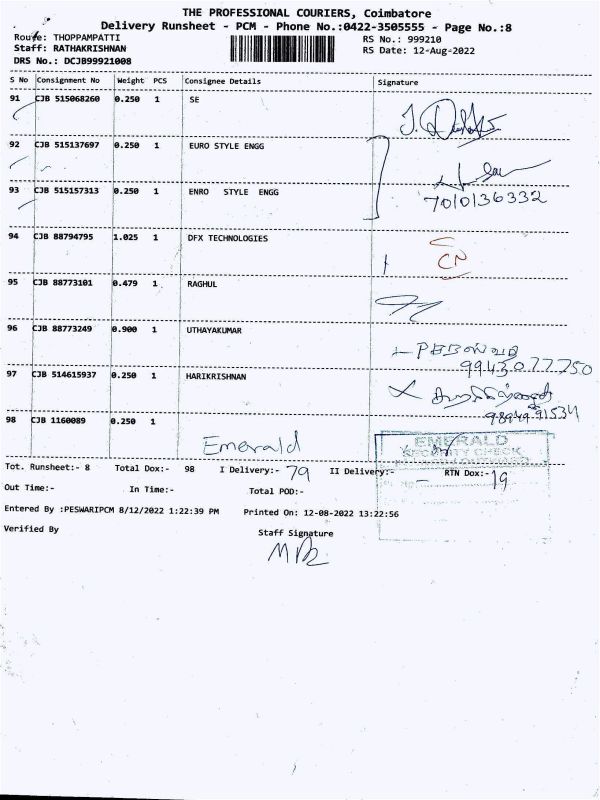 THE PROFESSIONAL COURIERS, Coimbatore
Delivery Runsheet - PCM - Phone No.:0422-3505555 - Page No.:8
Route: THOPPAMPATTI
RS No.: 999210
Staff: RATHAKRISHNAN
RS Date: 12-Aug-2022
DRS No.: DCJB99921008
S No Consignment No Weight PCS Consignee Details Signature
91 CJB 515068260 0.250 1 SE
92 CJB 515137697 0.250 1 EURO STYLE ENGG
93 CJB 515157313 0.250 1 ENRO STYLE ENGG
7010136332
94 CJB 88794795 1.025 1 DFX TECHNOLOGIES
CN
95 CJB 88773101 0.479 1 RAGHUL
96 CJB 88773249 0.900 1 UTHAYAKUMAR
9943077750
97 CJB 514615937 0.250 1 HARIKRISHNAN
98 CJB 1160089 0.250 1
Emerald
EMERALD
SECURITY CHECK
Tot. Runsheet:- 8 Total Dox:- 98 I Delivery:- 79 II Delivery:- - RTN Dox:- 19
Out Time:- In Time:- Total POD:-
Entered By :PESWARIPCM 8/12/2022 1:22:39 PM Printed On: 12-08-2022 13:22:56
Verified By
Staff Signature